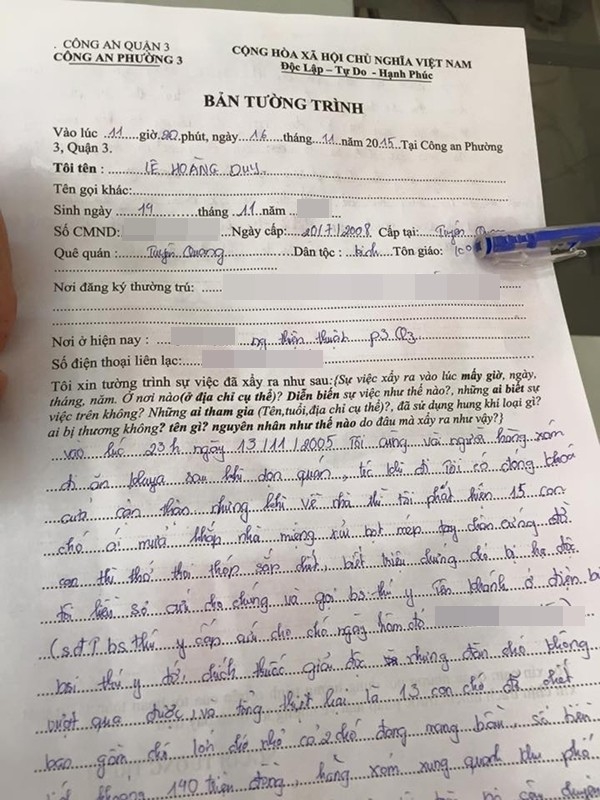 . CÔNG AN QUẬN 3
CỘNG HÒA XÃ HỘI CHỦ NGHĨA VIỆT NAM
CÔNG AN PHƯỜNG 3
Độc Lập – Tự Do - Hạnh Phúc
BẢN TƯỜNG TRÌNH
Vào lúc ..11....giờ.20.phút, ngày..16....tháng..11..năm 2015.Tại Công an Phường
3, Quận 3.
Tôi tên : LÊ HOÀNG DUY
Tên gọi khác:
Sinh ngày 19 tháng .11.năm
Số CMND: Ngày cấp: 20/7/2008 Cấp tại: Tuyên
Quê quán : Tuyên Quang Dân tộc : kinh Tôn giáo:
Nơi đăng ký thường trú:
Nơi ở hiện nay : ng thiện thuật p3 Q3
Số điện thoại liên lạc:
Tôi xin tường trình sự việc đã xẩy ra như sau:{Sự việc xẩy ra vào lúc mấy giờ, ngày,
tháng, năm. Ở nơi nào(ở địa chỉ cụ thể)? Diễn biến sự việc như thế nào?, những ai biết sự
việc trên không? Những ai tham gia (Tên,tuổi,địa chỉ cụ thể)?, đã sử dụng hung khí loại gì?
ai bị thương không? tên gì? nguyên nhân như thế nào do đâu mà xẩy ra như vậy?}
vào lúc 23h ngày 13/11/2005 Tôi cùng vài người hàng xóm
đi ăn khuya sau khi dọn quán, túc khi đi Tôi có đóng khoá
cửa cẩn thận nhưng khi về nhà thì tôi phát hiện 15 con
chó ói mửa khắp nhà miệng xùi bọt mép tay chân cứng đờ
con thì thở thoi thóp sắp chết, biết triệu chứng chó bị hạ độc
tôi liền sơ cứu cho chúng và gọi bs thú y Tên khánh ở điện bi
(sđt bs thú y cấp cứu cho chó ngày hôm đó )
bởi thú y đó, chích thuốc giải độc nhưng đàn chó không
vượt qua được, và tổng thiệt hại là 13 con chó đã chết
bao gồm chó lớn chó nhỏ cả 2 chó đang mang bầu, số tiền
khoảng 190 triệu đồng, hàng xóm xung quanh khu phố